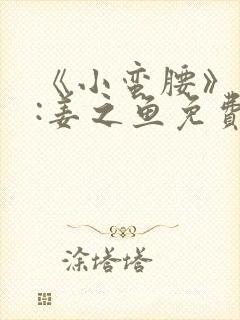 《小蛮腰》
:姜之鱼免費
涂塔塔